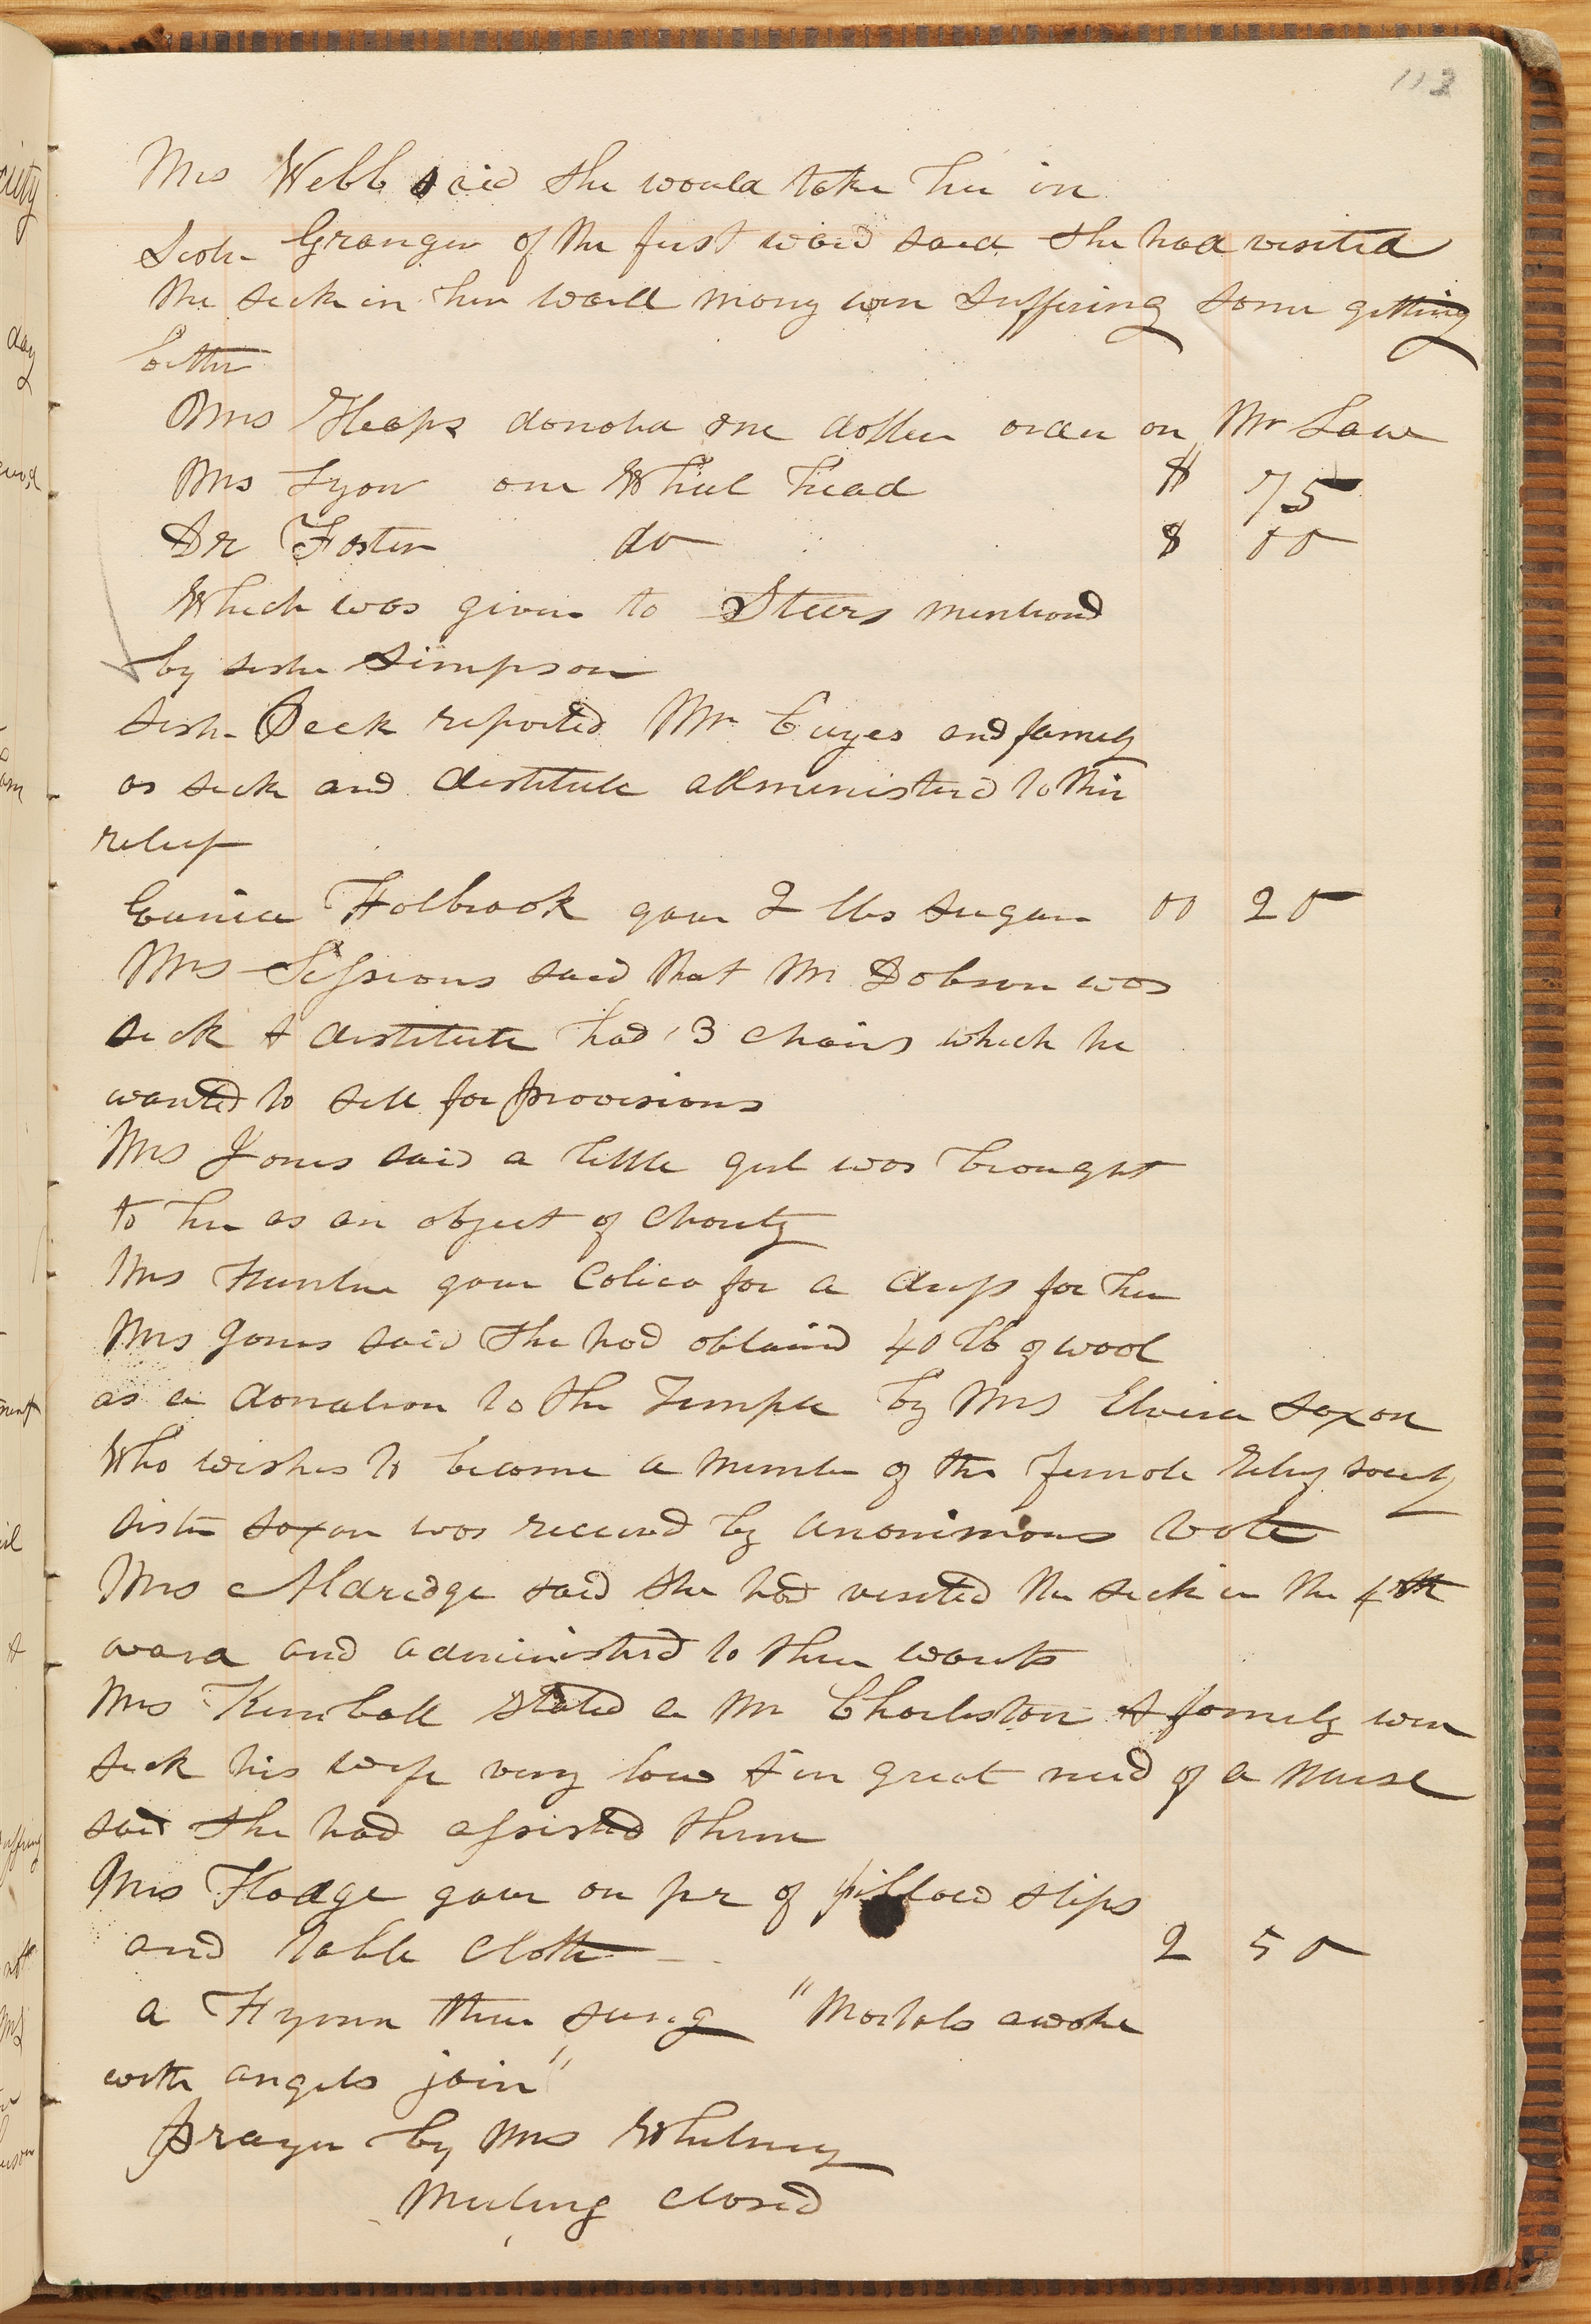 113
Mrs Webb said she would take her in
Sister Granger of the first ward said she had visited
the sick in her ward many were suffering some getting
better
Mrs Heaps donated one dollar order on Mr Law
Mrs Lyon one Wheel head $ 75
Dr Foster do $ 00
Which was given to Steers mentiond
by sister Simpson
Sister Peck reported Mr Cuyes and family
as sick and destitute administerd to their
relief
Eunice Holbrook gave 2 lbs sugar 00 20
Mrs Sessions said that Mr Dobson was
sick & destitute had 3 chairs which he
wanted to sell for provisions
Mrs Jones said a little girl was brought
to her as an object of charity
Mrs Hunter gave Calico for a dress for her
Mrs Jones said she had obtaind 40 lb of wool
as a donation to the Temple by Mrs Elvira Saxon
Who wishes to become a member of the female Relief society
sister Saxon was received by anonimous vote
Mrs Aldredge said she had visited the sick in the 4th
ward and administerd to their wants
Mrs Kimball stated a Mr Charleston & family were
sick his wife very low & in great need of a nurse
said she had assisted them
Mrs Hodge gave on pr of pillow slips
and table cloth 2 50
a Hymn then sung "Mortals awake
with angels join"
Prayer by Mrs Whitney
Meeting closed